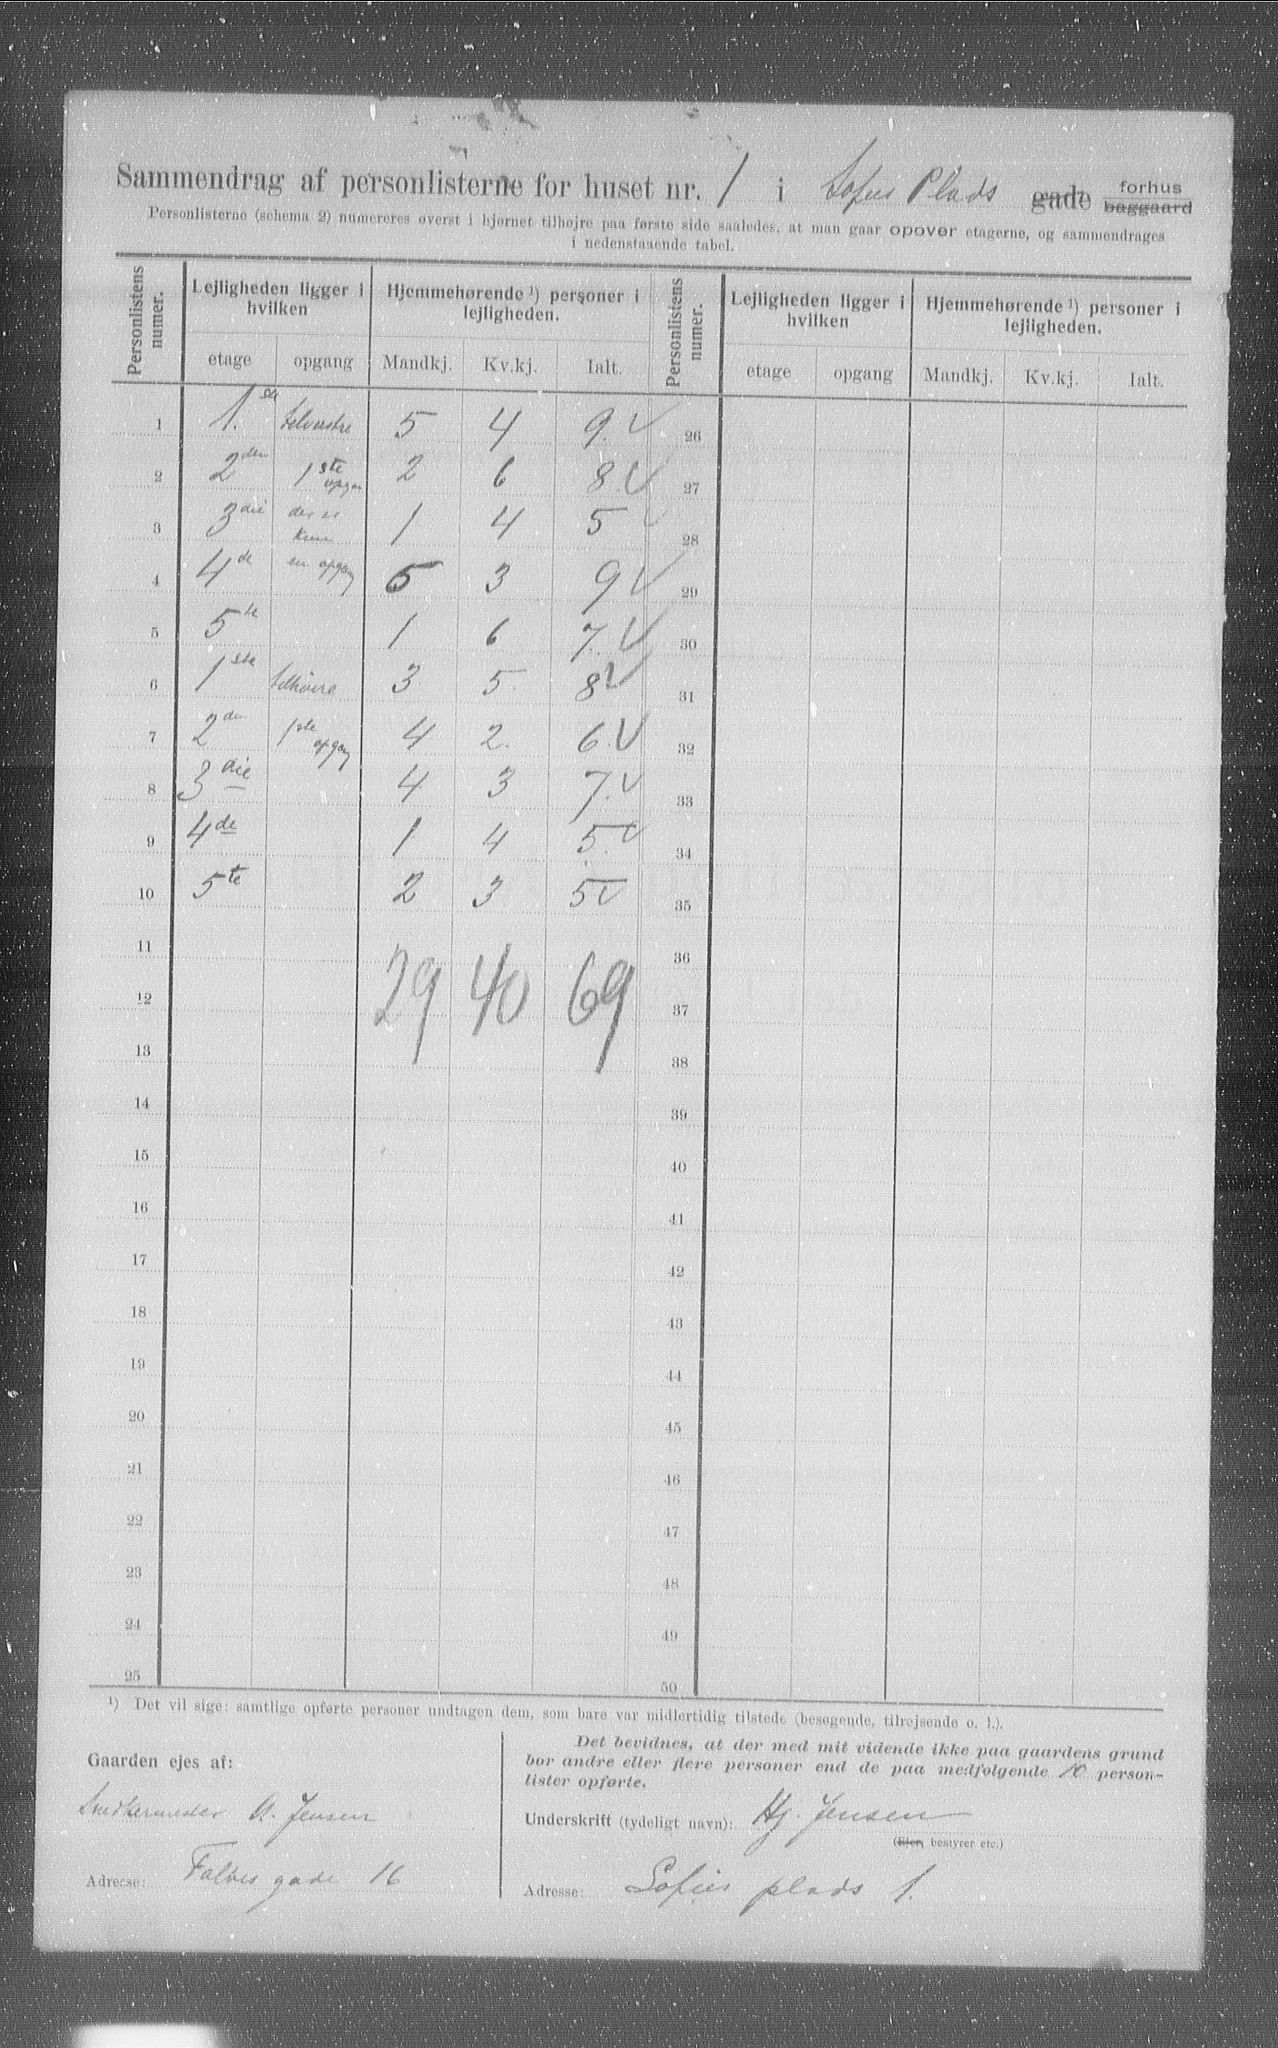 Sammendrag af personlisterne for huset nr. 1 i Sofies Plads gade forhus baggaard
Personlisterne (schema 2) numereres øverst i hjørnet tilhøjre paa første side saaledes, at man gaar opover etagerne, og sammendrages
i nedenstaaende tabel.
Personlistens numer. Lejligheden ligger i hvilken Hjemmehørende ¹) personer i lejligheden. Personlistens numer. Lejligheden ligger i hvilken Hjemmehørende ¹) personer i lejligheden.
etage opgang Mandkj. Kv.kj. Ialt. etage opgang Mandkj. Kv.kj. Ialt.
1 1. ste tilvenstre 5 4 9. 26
2 2den 1ste opgan 2 6 8 27
3 3die der er kun 1 4 5 28
4 4de en opgang 5 3 9 29
5 5te 1 6 7. 30
6 1ste tilhöire 3 5 8 31
7 2den 1ste opgang 4 2. 6. 32
8 3die 4 3 7. 33
9 4de 1 4 5. 34
10 5te 2 3 5 35
11 36
12 29 40 69 37
13 38
14 39
15 40
16 41
17 42
18 43
19 44
20 45
21 46
22 47
23 48
24 49
25 50
¹) Det vil sige: samtlige opførte personer undtagen dem, som bare var midlertidig tilstede (besøgende, tilrejsende o. l.).
Gaarden ejes af:
Snedkermester A. Jensen
Adresse: Falbes gade 16
Det bevidnes, at der med mit vidende ikke paa gaardens grund
bor andre eller flere personer end de paa medfølgende 10 person-
lister opførte.
Underskrift (tydeligt navn): Hj. Jensen
(Eier, bestyrer etc.)
Adresse: Sofies plads 1.